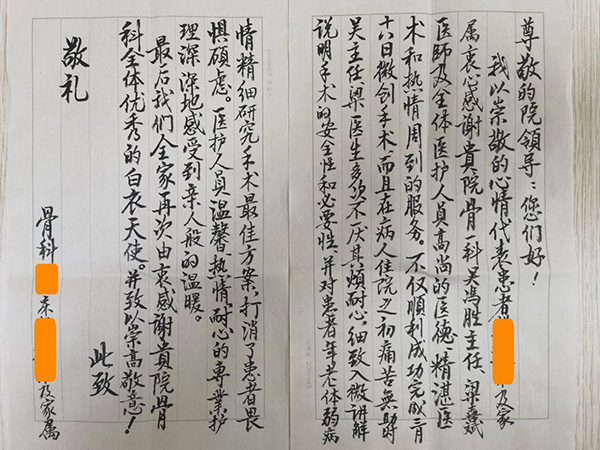 尊敬的院领导：您们好！
我以崇敬的心情代表患者及家
属衷心感谢貴院骨科吴冯胜主任、梁斌
医師及全体医护人员高尚的医德、精湛医
术和热情周到的服务。不仅順利成功完成三月
十八日微创手术，而且在病人住院之初痛苦無助
吴主任梁医生多次不厌其烦耐心细致入微讲解
说明手术的安全性和必要性，并对患者年老体弱病
情精细研究手术最佳方案，打消了患者畏
惧顾虑。医护人员温馨、热情、耐心的専業护
理深深地感受到亲人般的温暖。
最后我们全家再次由衷感谢貴院骨
科全体优秀的白衣天使。并致以崇高敬意！
此致
敬礼
骨科 及家属